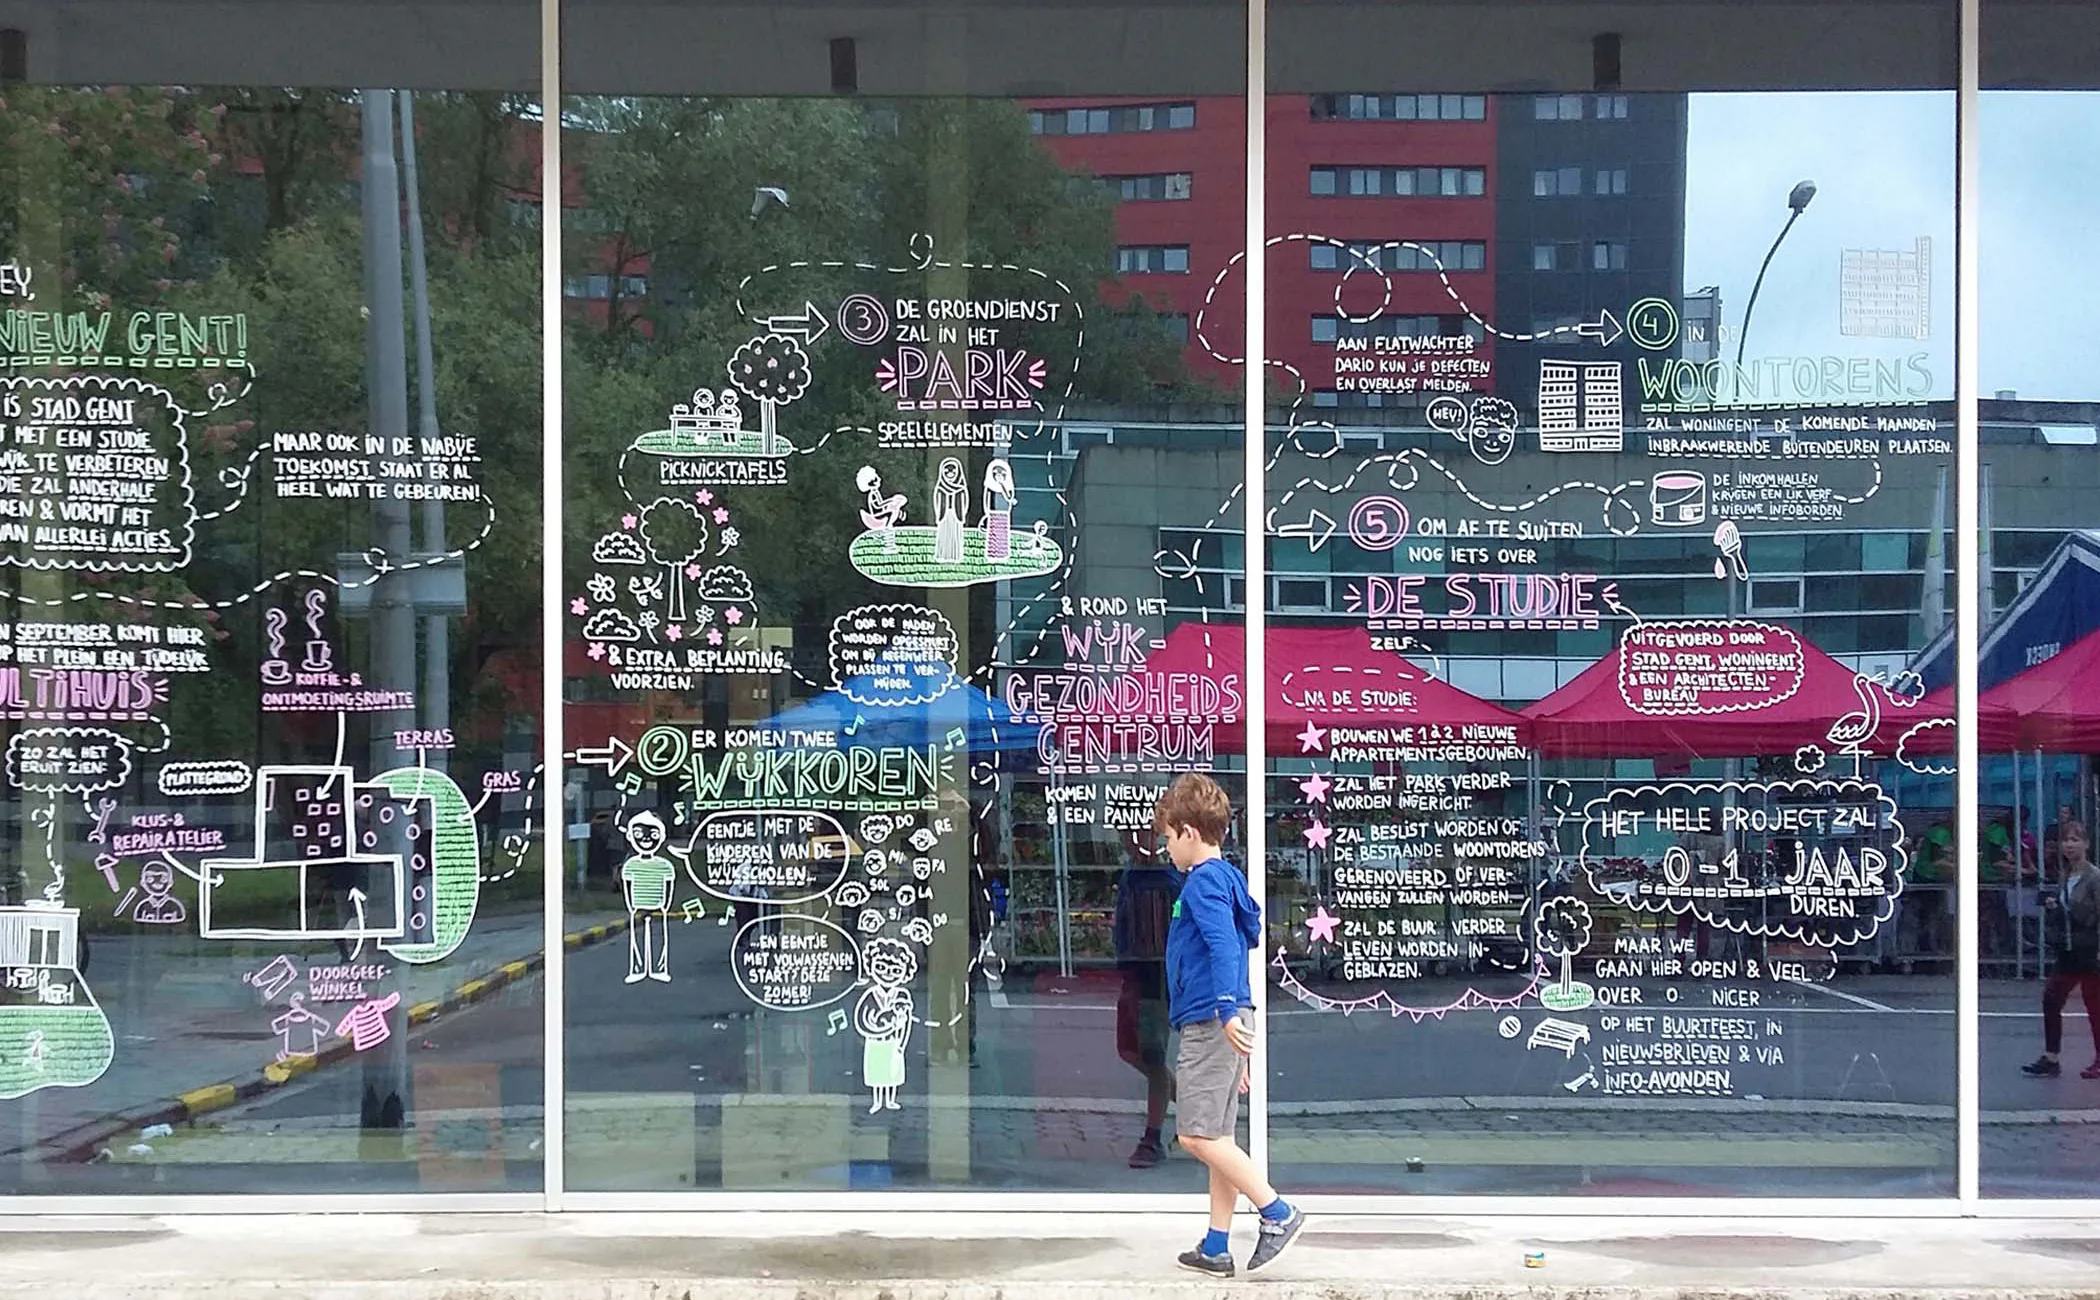 EY,
NIEUW GENT!
IS STAD GENT
T MET EEN STUDIE
WIJK TE VERBETEREN
DIE ZAL ANDERHALF
REN & VORMT HET
VAN ALLERLEI ACTIES
MAAR OOK IN DE NABIJE
TOEKOMST STAAT ER AL
HEEL WAT TE GEBEUREN!
N SEPTEMBER KOMT HIER
OP HET PLEIN EEN TIJDELIJK
ULTIHUIS
ZO ZAL HET
ERUIT ZIEN:
PLATTEGROND
KOFFIE- &
ONTMOETINGSRUIMTE
TERRAS
GRAS
KLUS- &
REPAIRATELIER
DOORGEEF-
WINKEL
2 ER KOMEN TWEE
WIJKKOREN
EENTJE MET DE
KINDEREN VAN DE
WIJKSCHOLEN...
DO
RE
MI
FA
SOL
LA
SI
DO
...EN EENTJE
MET VOLWASSENEN
START DEZE
ZOMER!
3 DE GROENDIENST
ZAL IN HET
PARK
SPEELELEMENTEN
PICKNICKTAFELS
& EXTRA BEPLANTING
VOORZIEN.
OOK DE PADEN
WORDEN OPGESMUKT
OM BIJ REGENWEER
PLASSEN TE VER-
MIJDEN.
& ROND HET
WIJK-
GEZONDHEIDS
CENTRUM
KOMEN NIEUWE
& EEN PANNA
4 IN DE
WOONTORENS
ZAL WONINGENT DE KOMENDE MAANDEN
INBRAAKWERENDE BUITENDEUREN PLAATSEN.
AAN FLATWACHTER
DARIO KUN JE DEFECTEN
EN OVERLAST MELDEN.
HEY!
DE INKOMHALLEN
KRIJGEN EEN LIK VERF
& NIEUWE INFOBORDEN
5 OM AF TE SLUITEN
NOG IETS OVER
DE STUDIE
ZELF:
UITGEVOERD DOOR
STAD GENT, WONINGENT
& EEN ARCHITECTEN-
BUREAU
NA DE STUDIE:
BOUWEN WE 1 à 2 NIEUWE
APPARTEMENTSGEBOUWEN.
ZAL HET PARK VERDER
WORDEN INGERICHT
ZAL BESLIST WORDEN OF
DE BESTAANDE WOONTORENS
GERENOVEERD OF VER-
VANGEN ZULLEN WORDEN.
ZAL DE BUUR VERDER
LEVEN WORDEN IN-
GEBLAZEN.
HET HELE PROJECT ZAL
0-1 JAAR
DUREN.
MAAR WE
GAAN HIER OPEN & VEEL
OVER O NICER
OP HET BUURTFEEST, IN
NIEUWSBRIEVEN & VIA
INFO-AVONDEN.